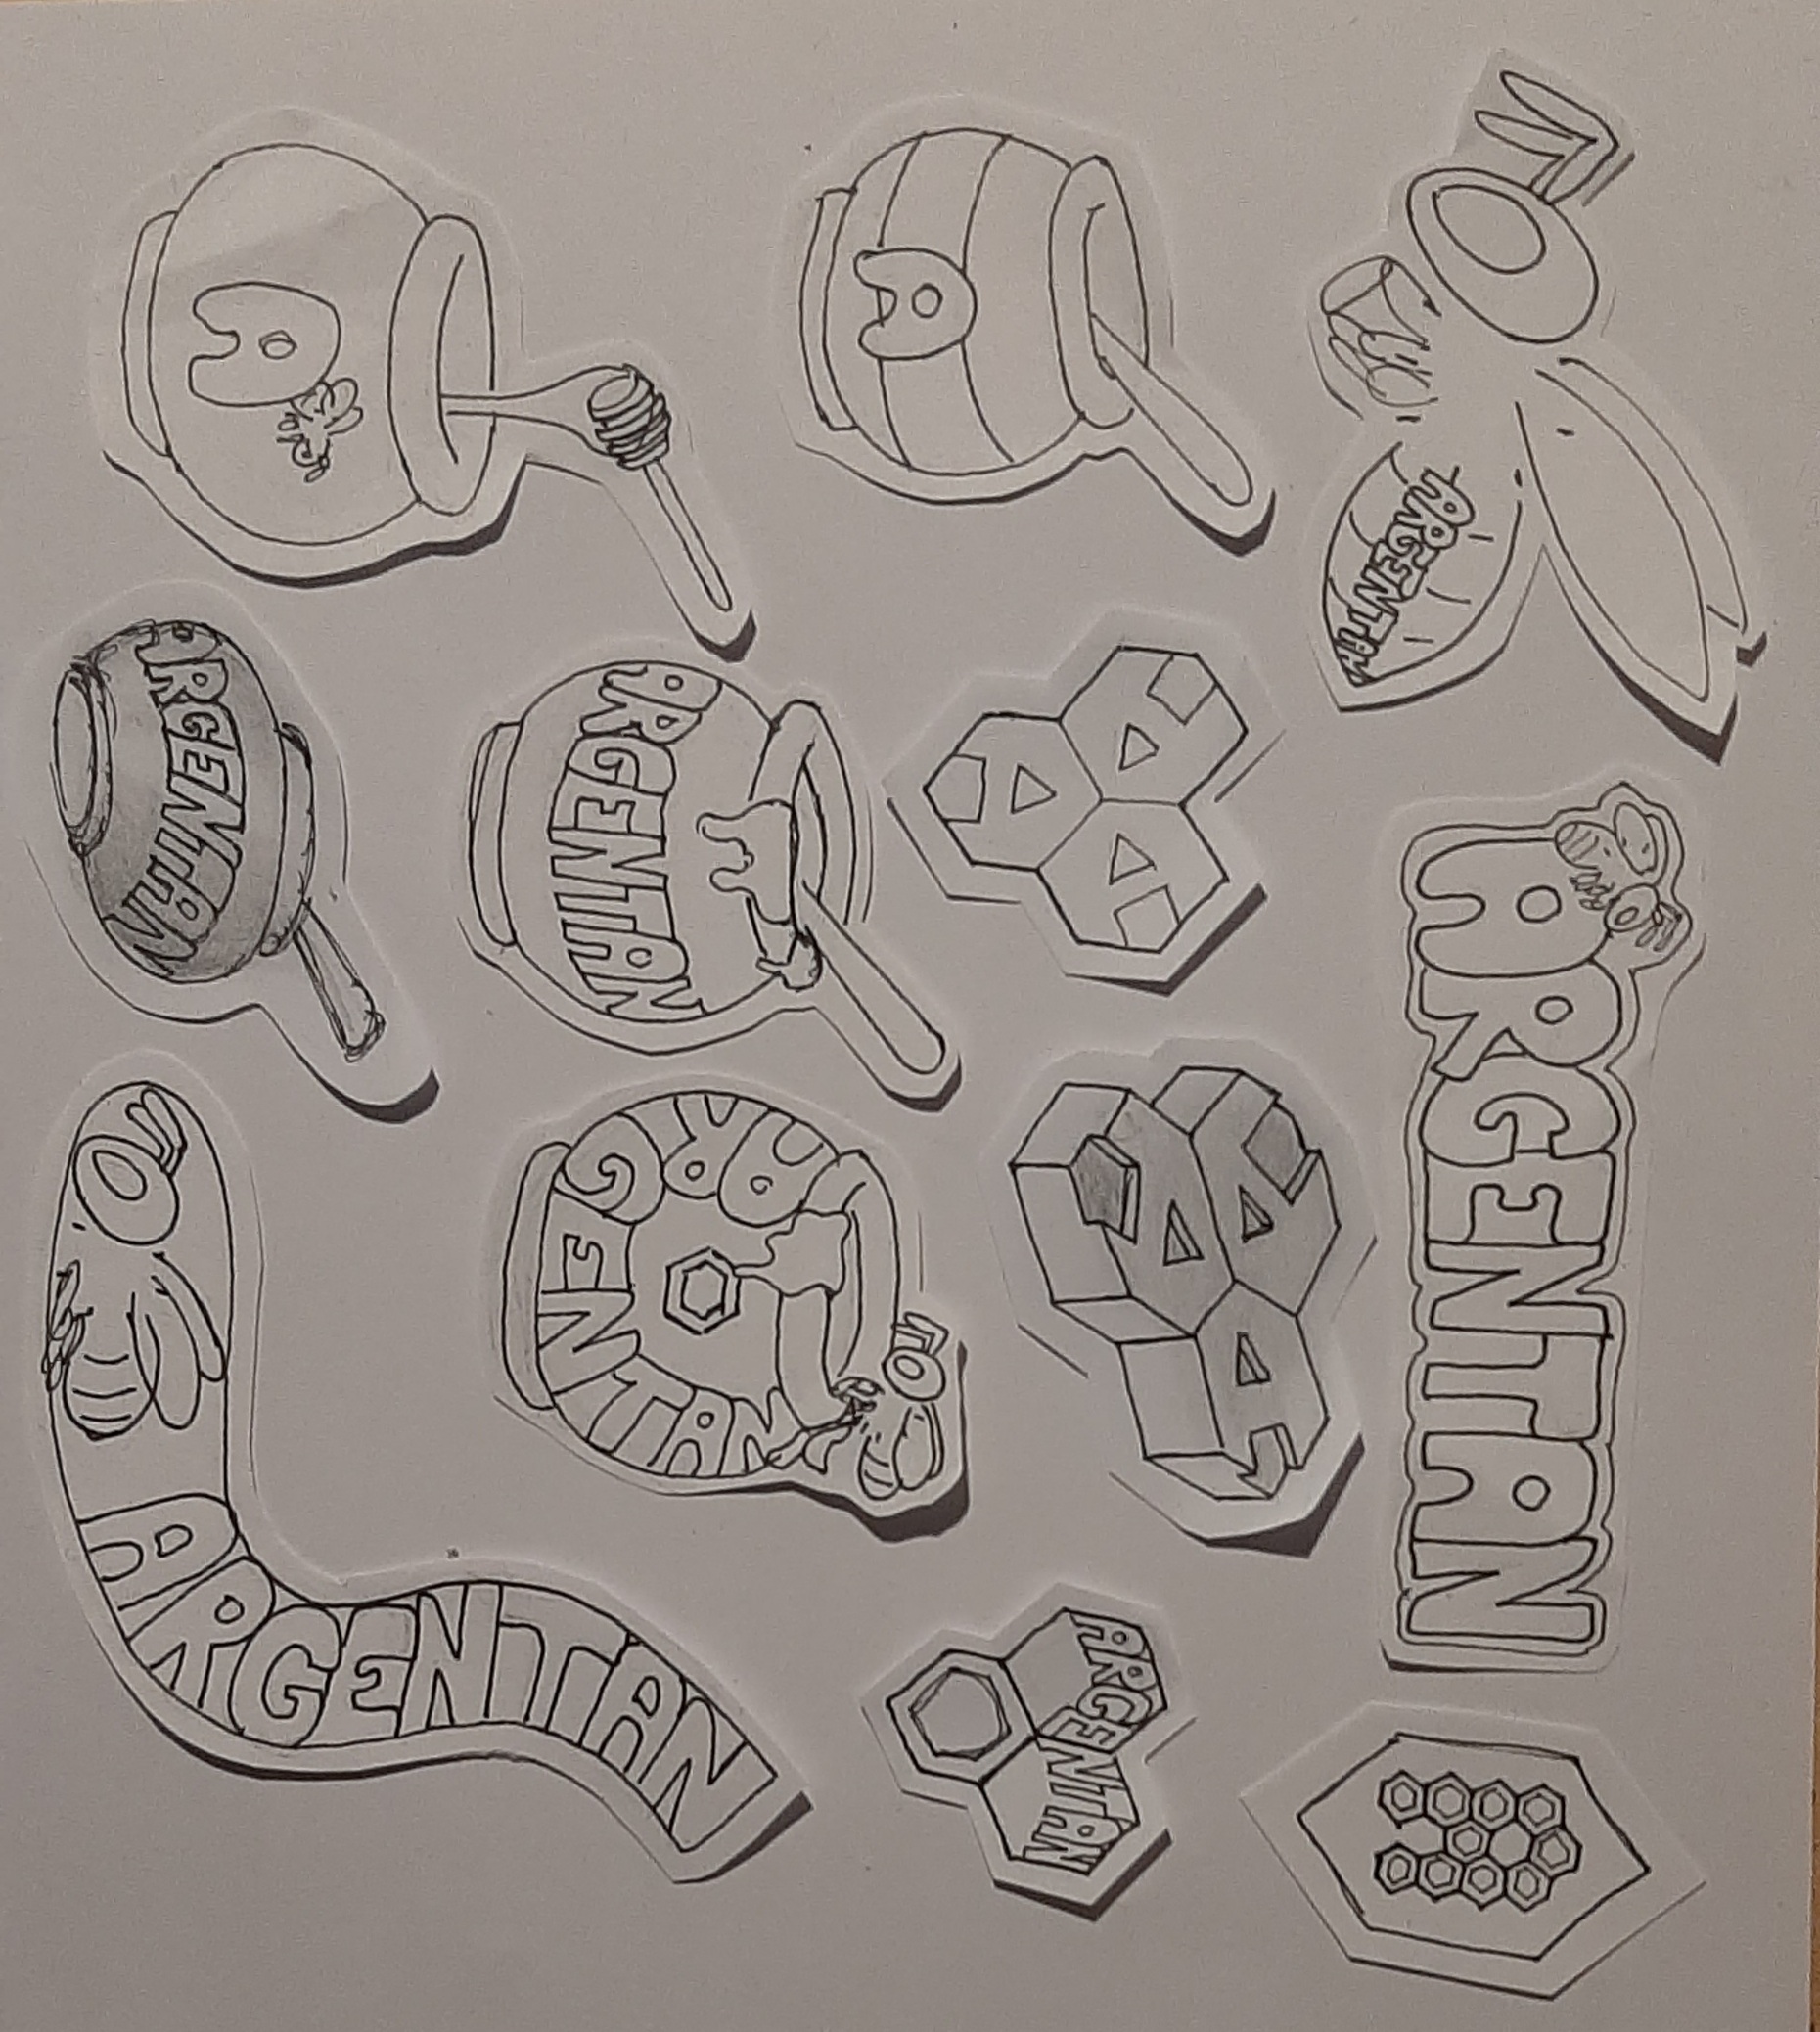 ARGENTAN
ARGENTAN
A
A
A
A
A
A
A
ARGENTAN
A
ARGENTAN
ARGENTAN
A
ARGENTAN
ARGENTAN